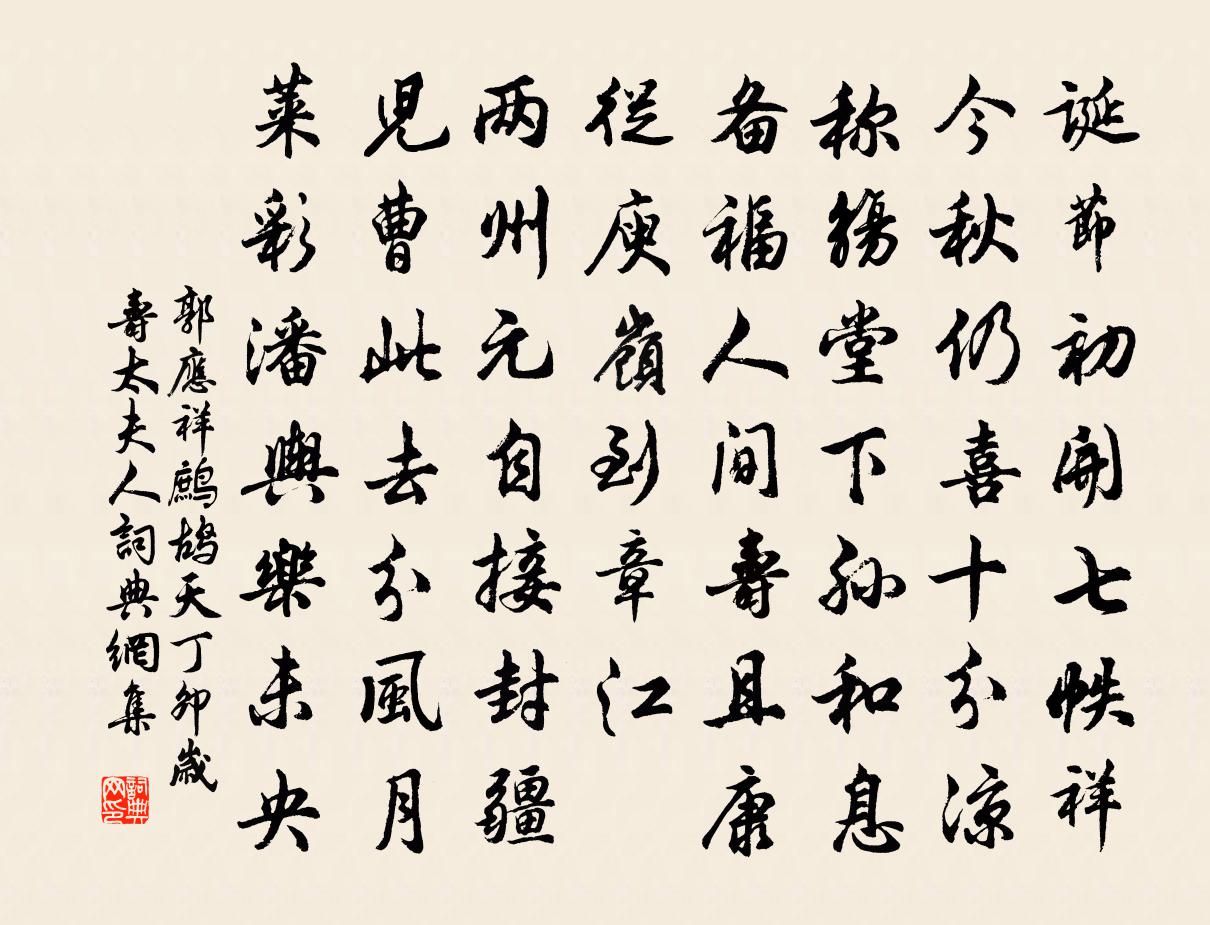 誕節初開七帙祥
今秋仍喜十分涼
称觴堂下孫和息
备福人间壽且康
從庾嶺到章江
两州元自接封疆
児曹此去分風月
萊彩潘輿樂未央
郭應祥鷓鴣天丁卯歲
壽太夫人詞典網集
詞典网印